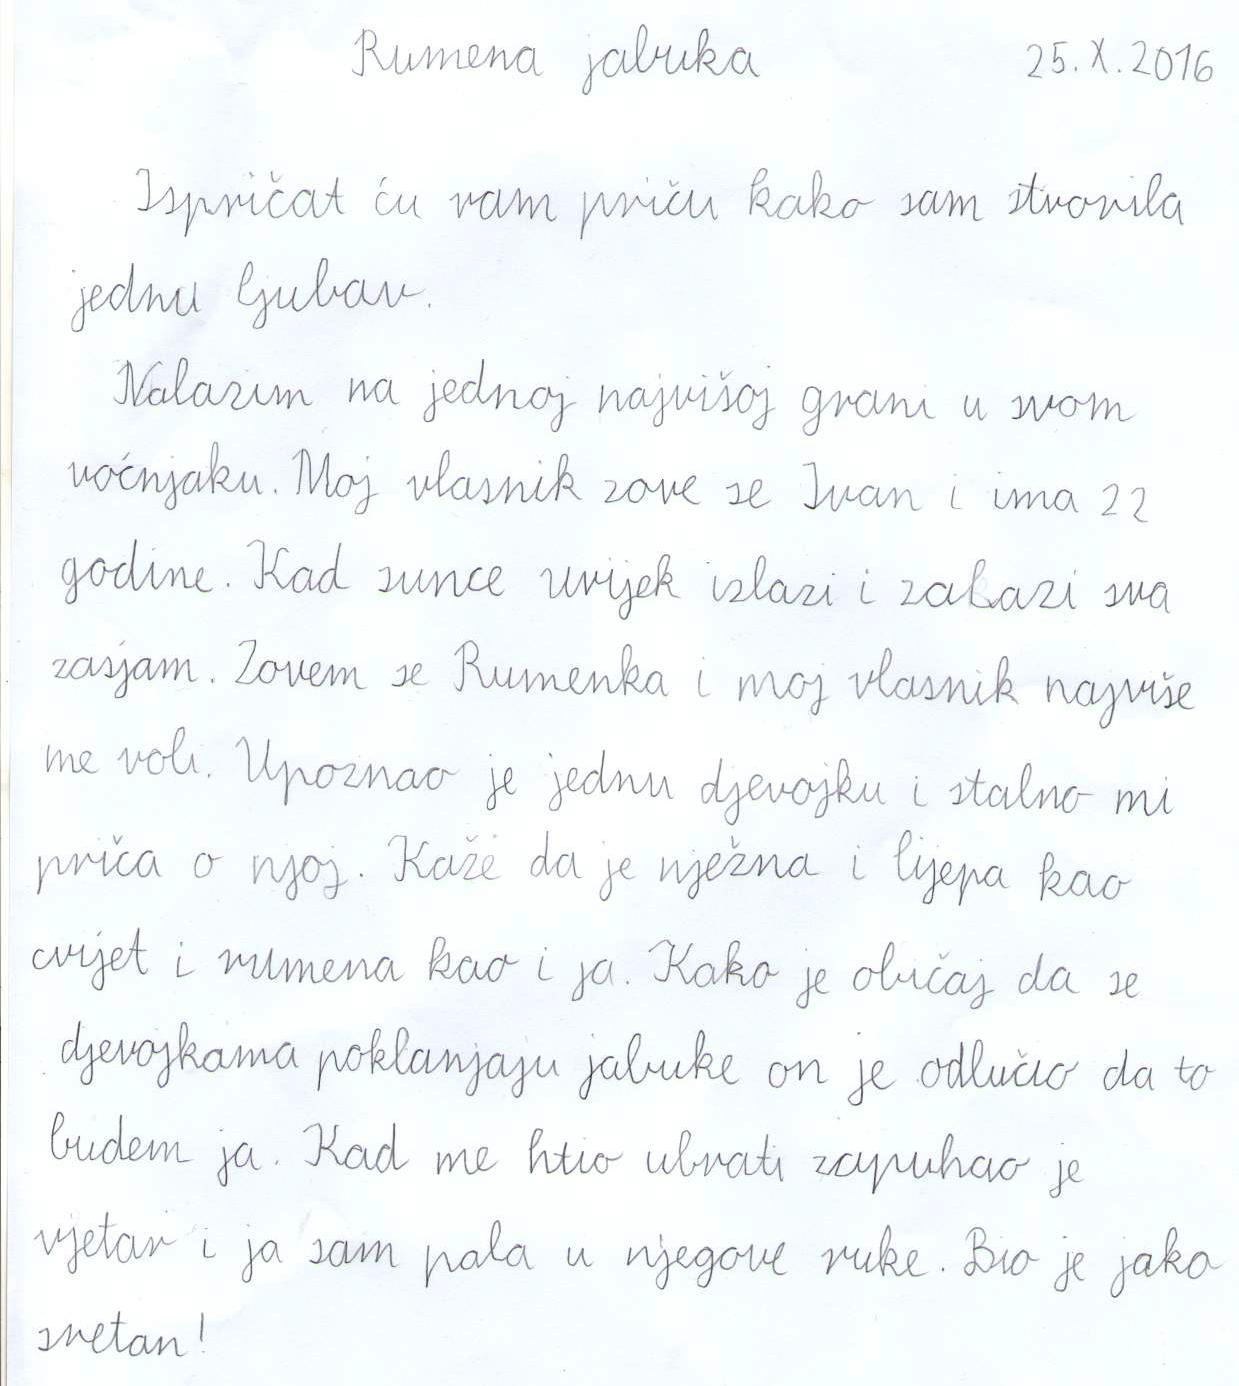 Rumena jabuka 25. X. 2016
Ispričat ću vam priču kako sam stvorila
jednu ljubav.
Nalazim na jednoj najvišoj grani u svom
voćnjaku. Moj vlasnik zove se Ivan i ima 22
godine. Kad sunce uvijek izlazi i zalazi sva
zasjam. Zovem se Rumenka i moj vlasnik najviše
me voli. Upoznao je jednu djevojku i stalno mi
priča o njoj. Kaže da je nježna i lijepa kao
cvijet i rumena kao i ja. Kako je običaj da se
djevojkama poklanjaju jabuke on je odlučio da to
budem ja. Kad me htio ubrati zapuhao je
vjetar i ja sam pala u njegove ruke. Bio je jako
sretan!